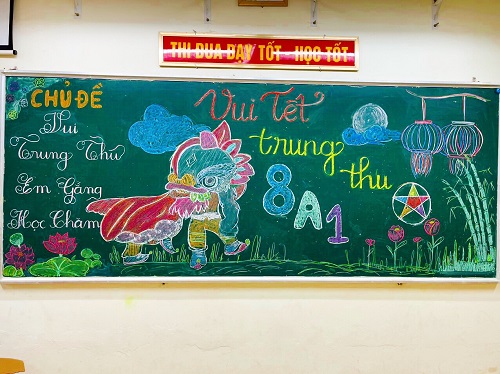 THI ĐUA DẠY TỐT - HỌC TỐT
CHỦ ĐỀ
Vui
Trung Thu
Em Gắng
Học Chăm
Vui Tết
trung
thu
8A1